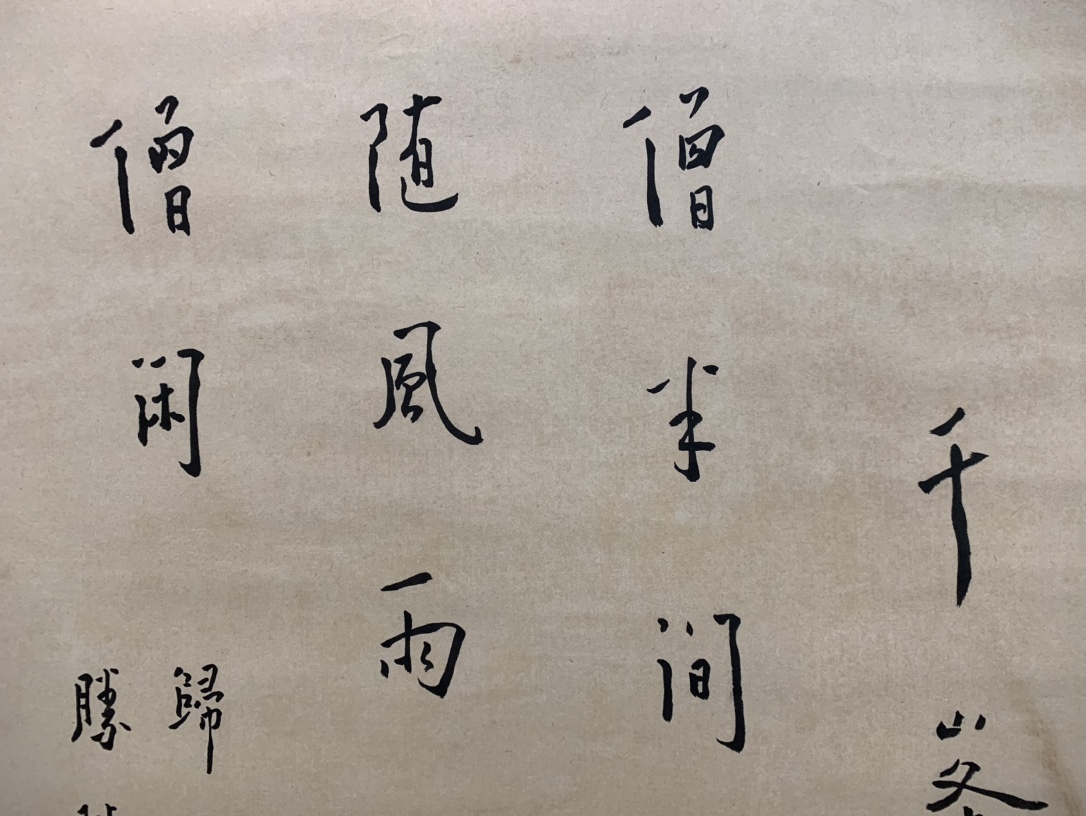 千峯
僧半間
随風雨
僧閑
歸
勝